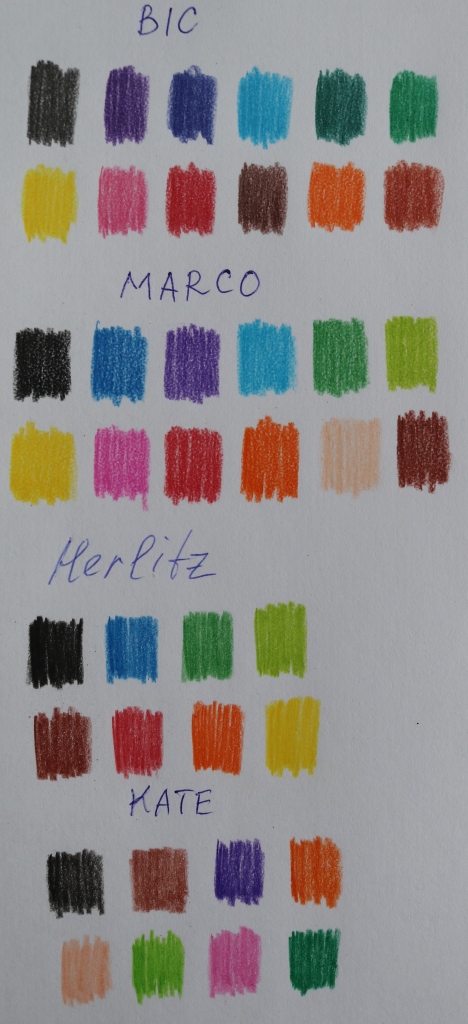 BIC
MARCO
Herlitz
KATE